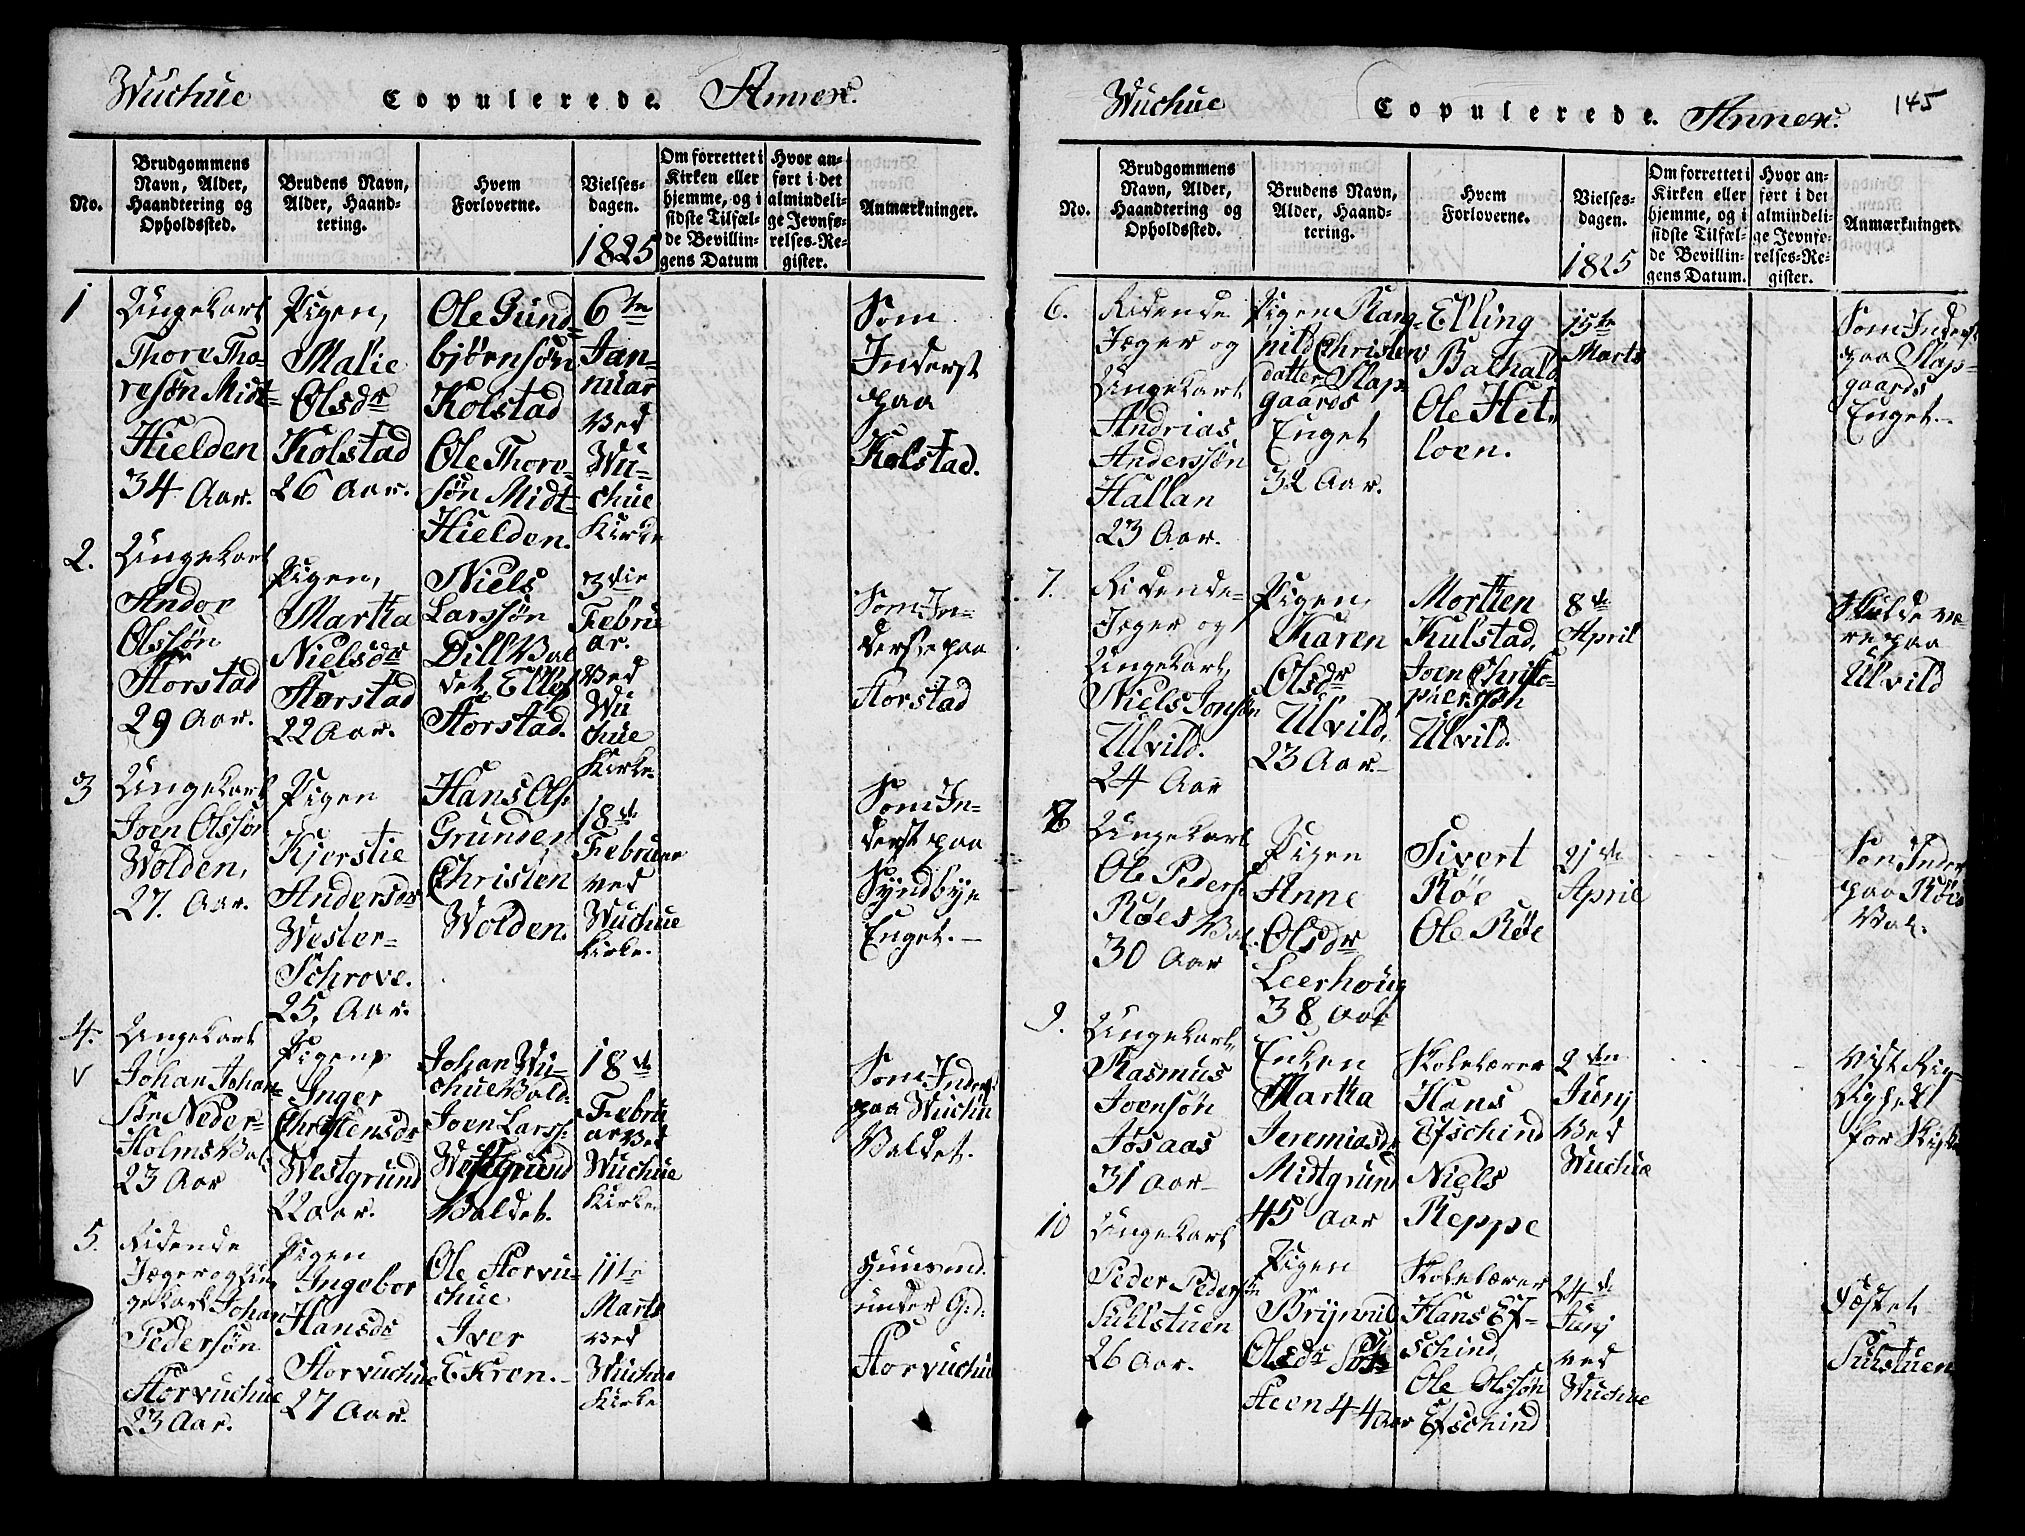 Wuchue Copulerede. Annex.
No.
Brudgommens
Navn, Alder,
Haandtering og
Opholdssted.
Brudens Navn,
Alder, Haand-
tering.
Hvem
Forloverne.
Vielses-
dagen.
1825
Om forrettet i
Kirken eller
hjemme, og i
sidste Tilfæl-
de Bevillin-
gens Datum
Hvor an-
ført i det
almindeli-
ge Jevnfø-
relses-Re-
gister.
Anmærkninger.
1
Ungekarl
Thore Tho-
resøn Midt-
Hielden
34 Aar.
Pigen,
Malie
Olsdr
Kolstad
26 Aar.
Ole Gund-
bjørnsøn
Kolstad
Ole Thore-
søn Midt-
Hielden.
6te
Jan-
nuar
ved
Wu-
chue
Kirke
Som
Inderst
paa
Kolstad.
2.
Ungekarl
Andor
Olssøn
Storstad
29 Aar.
Pigen,
Martha
Nielsdr
Storstad
22 Aar.
Niels
Larssøn
Dill Val
det, Ellef
Storstad.
3die
Februe
ar.
ved
Wu
chue
Kirke.
Som In-
derste paa
Storstad
3
Ungekarl
Joen Olssøn
Wolden,
27. Aar.
Pigen
Kjerstie
Andersdr
Wester-
Schrove.
25, Aar.
Hans Ols:
Grunden
Christen
Wolden.
18de
Februar
ved
Wuchue
Kirke.
Som In-
derst paa
Syndbye
Enget.-
4.
Ungekarl
Johan Johan-
søn Neder-
Holms Val
23 Aar
Pigen,
Inger
Christensdr
Westgrund
22 aar.
Johan Wu-
chue Vald.
Joen Larss:
Westgrund
Valdet.
18de
Febru
ar ved
Wuchue
Kirke.
Som Inders
paa Wuchu
Valdet.
5.
Ridende
Jæger og Un
gekarl Johan
Pedersøn
Storvuchue
23 Aar.
Pigen
Ingebor
Hansdr
Storvuchue
27 Aar.
Ole Storvu-
chue
Iver
Ekren.-
11te
Marts
ved
Wuchue
Kirke
Huusmd.
under Grd:
Storvuchue
Wuchue Copulerede. Annex. 145
No.
Brudgommens
Navn, Alder,
Haandtering og
Opholdssted.
Brudens Navn,
Alder, Haand-
tering.
Hvem
Forloverne.
Vielses-
dagen.
1825
Om forrettet i
Kirken eller
hjemme, og i
sidste Tilfæl-
de Bevillin-
gens Datum.
Hvor an-
ført i det
almindeli-
ge Jevnfø-
relses-Re-
gister.
Anmærkninger.
6.
Ridende
Jæger og
Ungekarl
Andrias
Anderssøn
Hallan
23 Aar.
Pigen Rang-
nild Christens
datter Slap-
gaards
Enget
32 Aar.
Elling
Balhald
Ole Het
loen.
15te
Marts
Som Inderst
paa Slap-
gaards
Enget.-
7.
Ridende-
Jæger og
Ungekarl,
Niels Jonsøn
Ulvild.
24 Aar
Pigen,
Karen
Olsdr
Ulvild,
23 Aar.-
Mortten
Kulstad,
Joen Christo-
phersøn
Ulvild.
8de
April
Skulde væ-
re paa
Ulvild
8
Ungekarl
Ole Peders:
Røes Val.
30 Aar
Pigen
Anne
Olsdr
Leerhoug
38 Aar
Sivert
Røe
Ole Røe
21de
April
Som Inder
paa Røes
Val.
9.
Ungekarl,
Rasmus
Joensøn
Josaas
31 Aar-
Enken
Martha
Jeremiasdr
Midtgrund
45 Aar
Skolelærer
Hans
Efschind
Niels
Reppe
2den
Junj
ved
Wuchue
10
Ungekarl
Peder Peders
Sullstuen
26 Aar.
Pigen
Brynnild
Olsdr
44 Aar
Skolelærer
Hans Ef-
schind
Ole Olssøn
Efschind
24de
Junj
ved
Wuchue
Fæstet